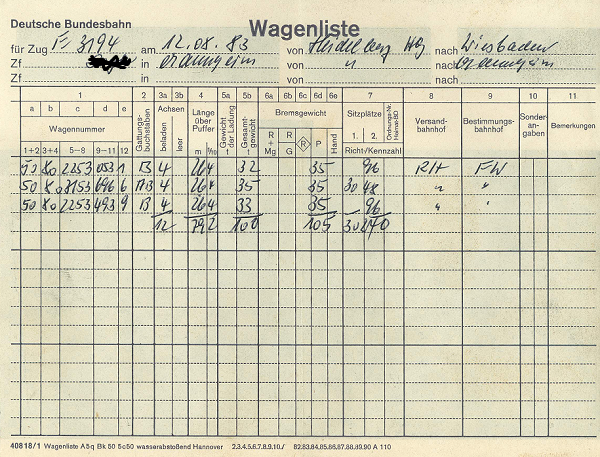 Deutsche Bundesbahn
Wagenliste
für Zug 3194 am 12.08.83 von Heidelberg Hg nach Wiesbaden
Zf in von " nach
1 2 3a 3b 4 5a 5b 6a 6b 6c 6d 6e 7 8 9 10 11
a b c d e Gattungs-buchstaben Achsen Länge über Puffer Gewicht der Ladung Gesamt-gewicht Bremsgewicht Sitzplätze Ordnungs-Nr. Heimat-BD Versand-bahnhof Bestimmungs-bahnhof Sonder-an-gaben Bemerkungen
Wagennummer beladen leer R + Mg R G R P Hand 1. 2.
1+2 3+4 5–8 9–11 12 m 1/10 t t Richt-/Kennzahl
50 80 2253 053 1 B 4 26 4 32 35 96 RH FW
50 80 8153 696 6 4 26 4 35 35 30 48 " "
50 80 2253 493 9 B 4 26 4 33 35 – 96 " "
12 79 2 100 105 30 240
40818/1 Wagenliste A5q Bk 50 5c50 wasserabstoßend Hannover 2.3.4.5.6.7.8.9.10./ 82.83.84.85.86.87.88.89.90 A 110